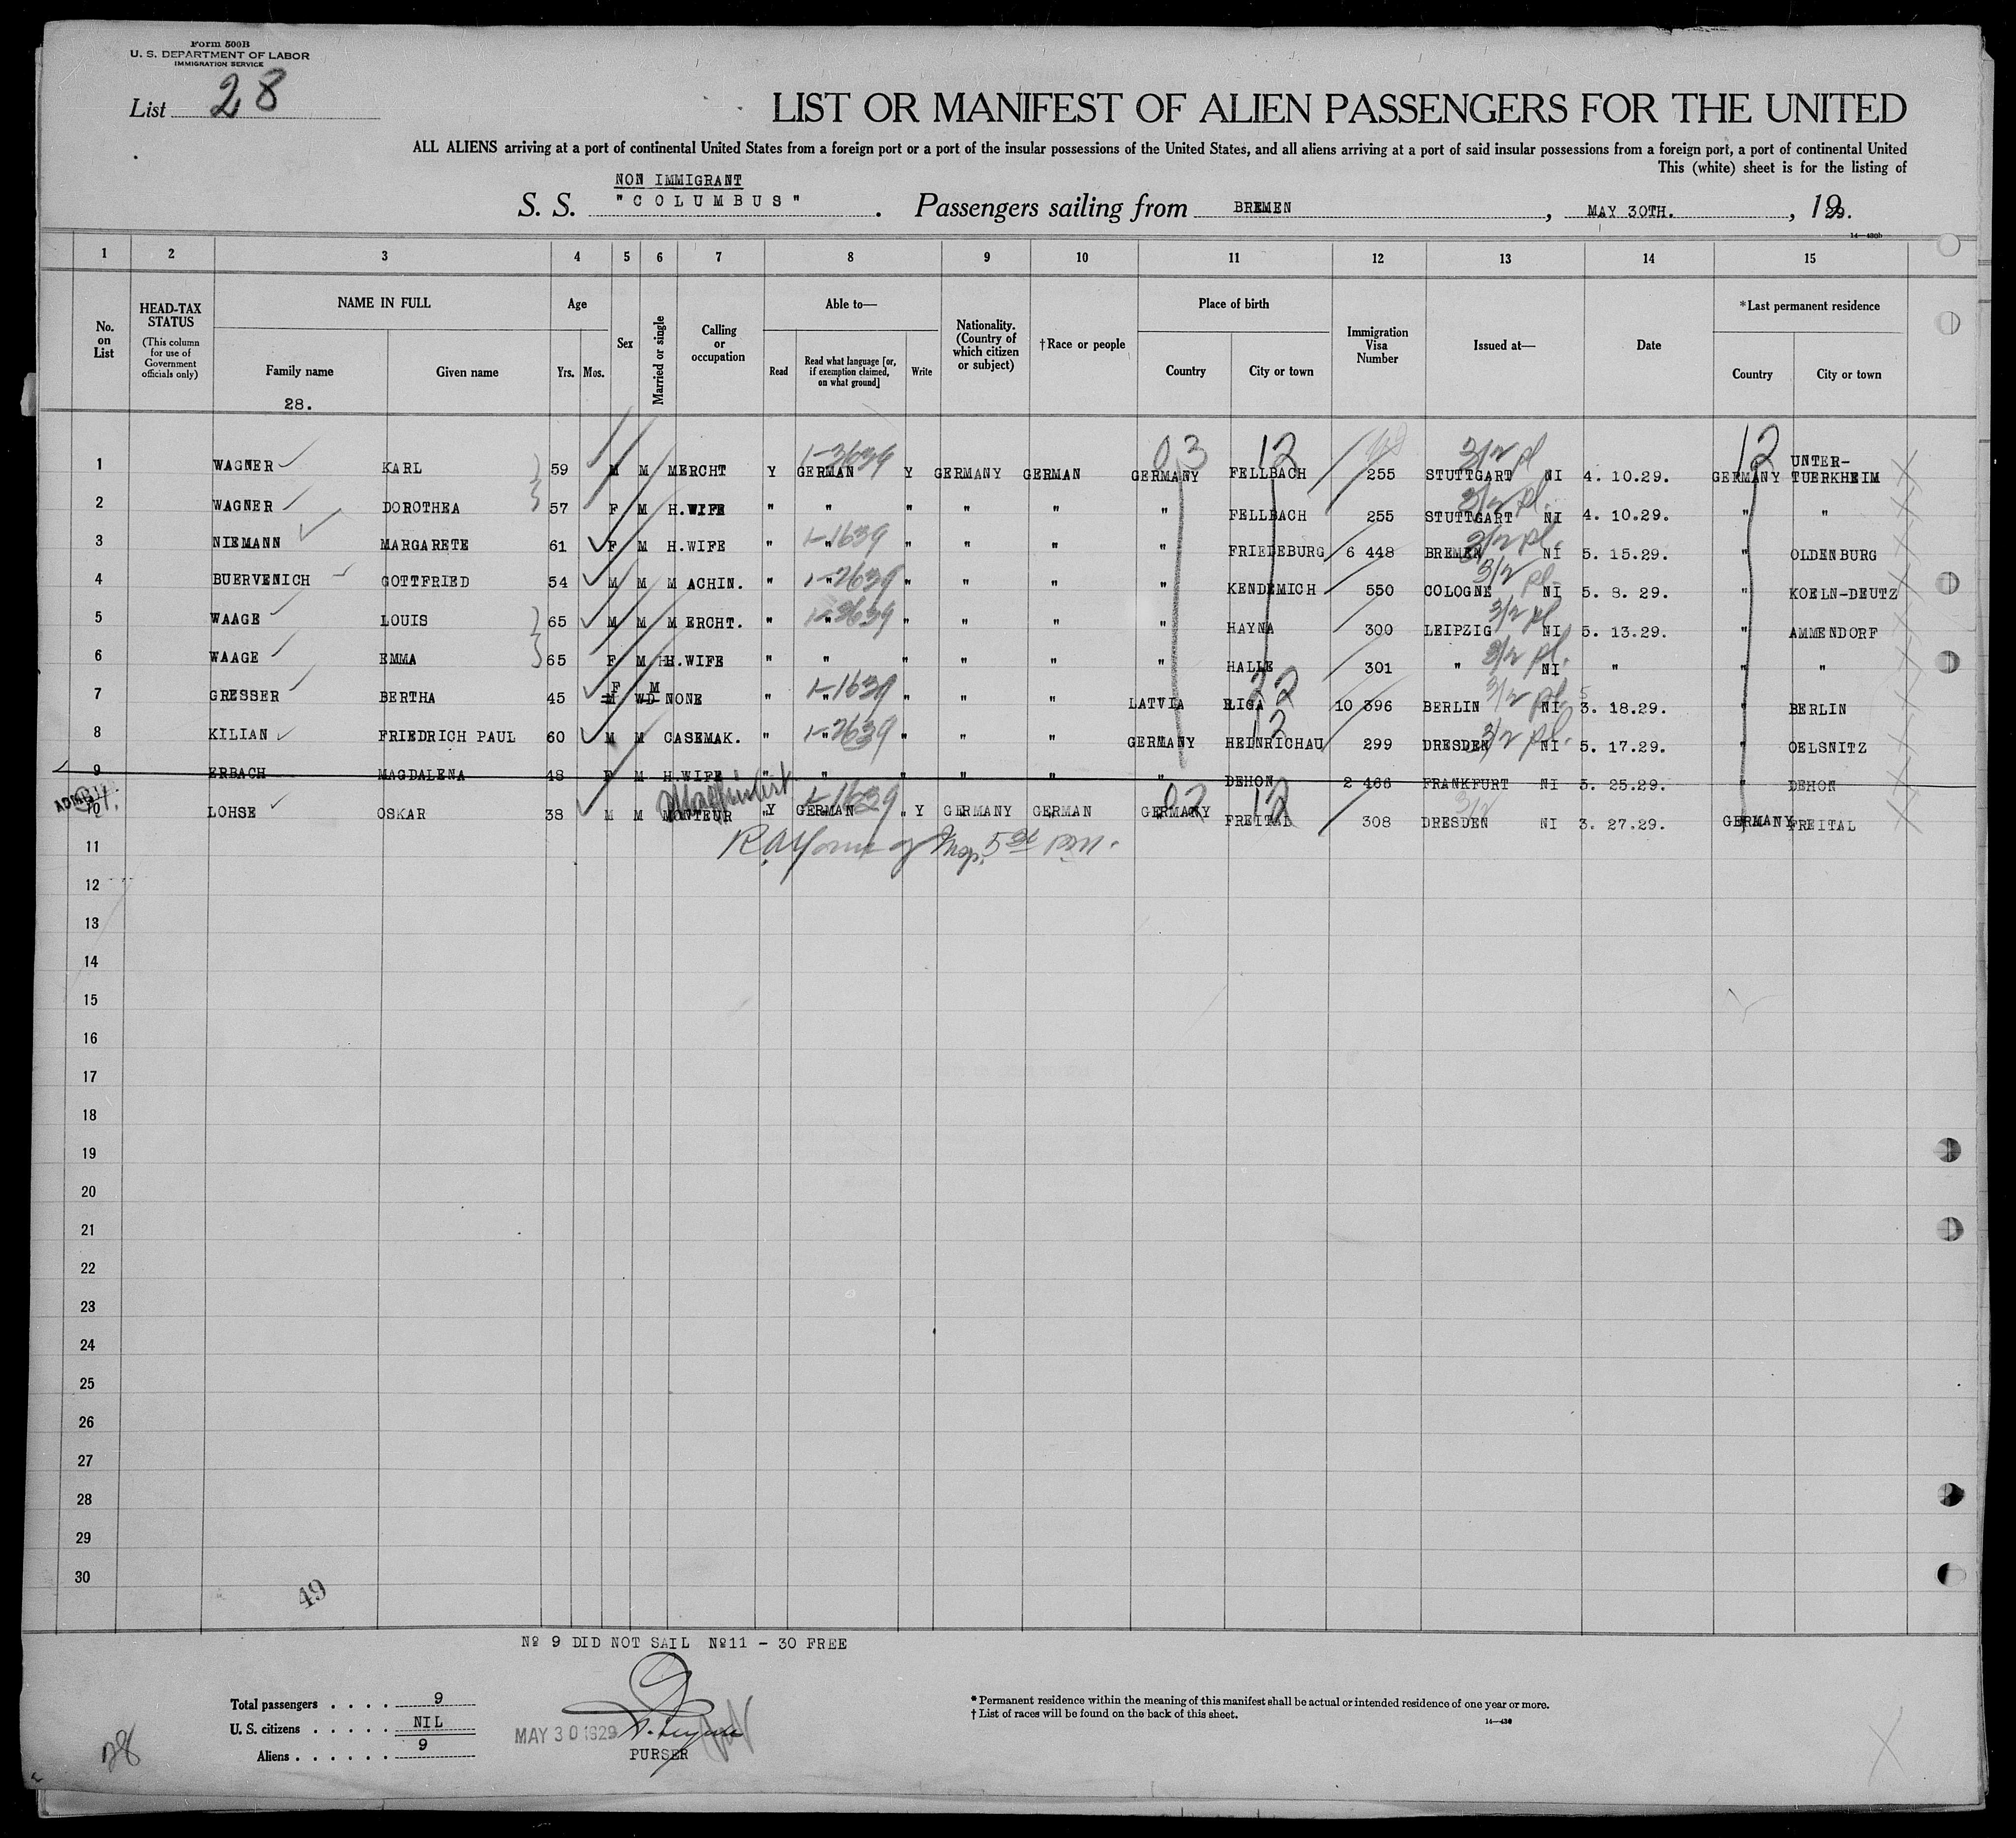 Form 500B
U. S. DEPARTMENT OF LABOR
IMMIGRATION SERVICE
List 28
LIST OR MANIFEST OF ALIEN PASSENGERS FOR THE UNITED
ALL ALIENS arriving at a port of continental United States from a foreign port or a port of the insular possessions of the United States, and all aliens arriving at a port of said insular possessions from a foreign port, a port of continental United
This (white) sheet is for the listing of
NON IMMIGRANT
S. S. "COLUMBUS". Passengers sailing from BREMEN, MAY 30TH., 1929.
14—430b
1 2 3 4 5 6 7 8 9 10 11 12 13 14 15
No. on List
HEAD-TAX STATUS
(This column for use of Government officials only)
NAME IN FULL
Family name Given name
28.
Age
Yrs. Mos.
Sex
Married or single
Calling or occupation
Able to—
Read
Read what language [or, if exemption claimed, on what ground]
Write
Nationality. (Country of which citizen or subject)
†Race or people
Place of birth
Country City or town
Immigration Visa Number
Issued at—
Date
*Last permanent residence
Country City or town
03 12 3/2 pl 12
1 WAGNER KARL 59 M M MERCHT Y GERMAN Y GERMANY GERMAN GERMANY FELLBACH 255 STUTTGART NI 4. 10.29. GERMANY UNTER-TUERKHEIM
2 WAGNER DOROTHEA 57 F M H.WIFE " " " " " " FELLBACH 255 STUTTGART NI 4. 10.29. " "
3 NIEMANN MARGARETE 61 F M H.WIFE " 1-1639 " " " " " FRIEDEBURG 6 448 BREMEN NI 5. 15.29. " OLDENBURG
4 BUERVENICH GOTTFRIED 54 M M MACHIN. " 1-2639 " " " " " KENDEMICH 550 COLOGNE NI 5. 8. 29. " KOELN-DEUTZ
5 WAAGE LOUIS 65 M M MERCHT. " " " " " " HAYNA 300 LEIPZIG NI 5. 13.29. " AMMENDORF
6 WAAGE EMMA 65 F M H.WIFE " " " " " " HALLE 301 " NI " " "
7 GRESSER BERTHA 45 F M WD NONE " 1-1639 " " " " LATVIA RIGA 22 10 396 BERLIN NI 3. 18.29. " BERLIN
8 KILIAN FRIEDRICH PAUL 60 M M CASEMAK. " 1-2639 " " " " GERMANY HEINRICHAU 12 299 DRESDEN NI 5. 17.29. " OELSNITZ
9 ERBACH MAGDALENA 48 F M H.WIFE " " " " " " DEHON 2 466 FRANKFURT NI 3. 25.29. " DEHON
10 LOHSE OSKAR 38 M M MONTEUR Y GERMAN 1-1639 Y GERMANY GERMAN GERMANY 02 FREITAL 12 308 DRESDEN NI 3. 27.29. GERMANY FREITAL
11
12
13
14
15
16
17
18
19
20
21
22
23
24
25
26
27
28
29
30
49
№ 9 DID NOT SAIL №11 - 30 FREE
Total passengers . . . . 9
U. S. citizens . . . . . NIL
Aliens . . . . . . 9
MAY 30 1929
PURSER
* Permanent residence within the meaning of this manifest shall be actual or intended residence of one year or more.
† List of races will be found on the back of this sheet.
14—430
28